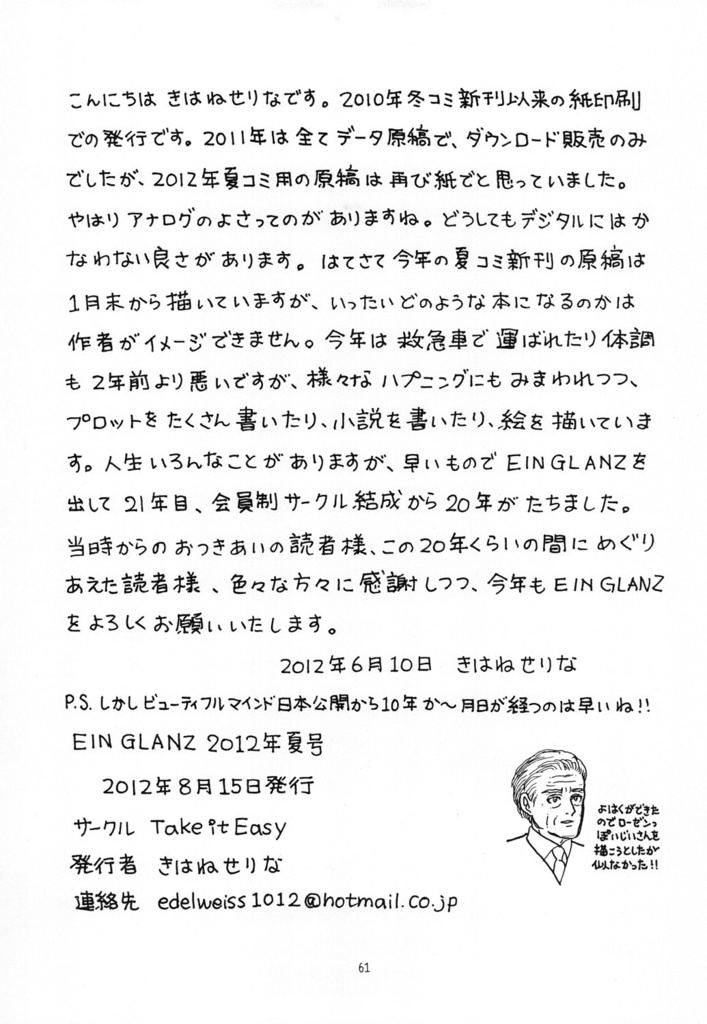 こんにちは きはねせりなです。2010年冬コミ新刊以来の紙印刷
での発行です。2011年は全てデータ原稿で、ダウンロード販売のみ
でしたが、2012年夏コミ用の原稿は再び紙でと思っていました。
やはりアナログのよさってのがありますね。どうしてもデジタルにはか
なわない良さがあります。はてさて今年の夏コミ新刊の原稿は
1月末から描いていますが、いったいどのような本になるのかは
作者がイメージできません。今年は救急車で運ばれたり体調
も2年前より悪いですが、様々なハプニングにもみまわれつつ、
プロットをたくさん書いたり、小説を書いたり、絵を描いていま
す。人生いろんなことがありますが、早いものでEIN GLANZを
出して21年目、会員制サークル結成から20年がたちました。
当時からのおつきあいの読者様、この20年くらいの間にめぐり
あえた読者様、色々な方々に感謝しつつ、今年もEIN GLANZ
をよろしくお願いいたします。
2012年6月10日 きはねせりな
P.S.しかしビューティフルマインド日本公開から10年か〜月日が経つのは早いね!!
EIN GLANZ 2012年夏号
2012年8月15日発行
サークル Take it Easy
発行者 きはねせりな
連絡先 edelweiss1012@hotmail.co.jp
よはくができた
のでローゼンっ
ぽいじいさんを
描こうとしたが
似なかった!!
61